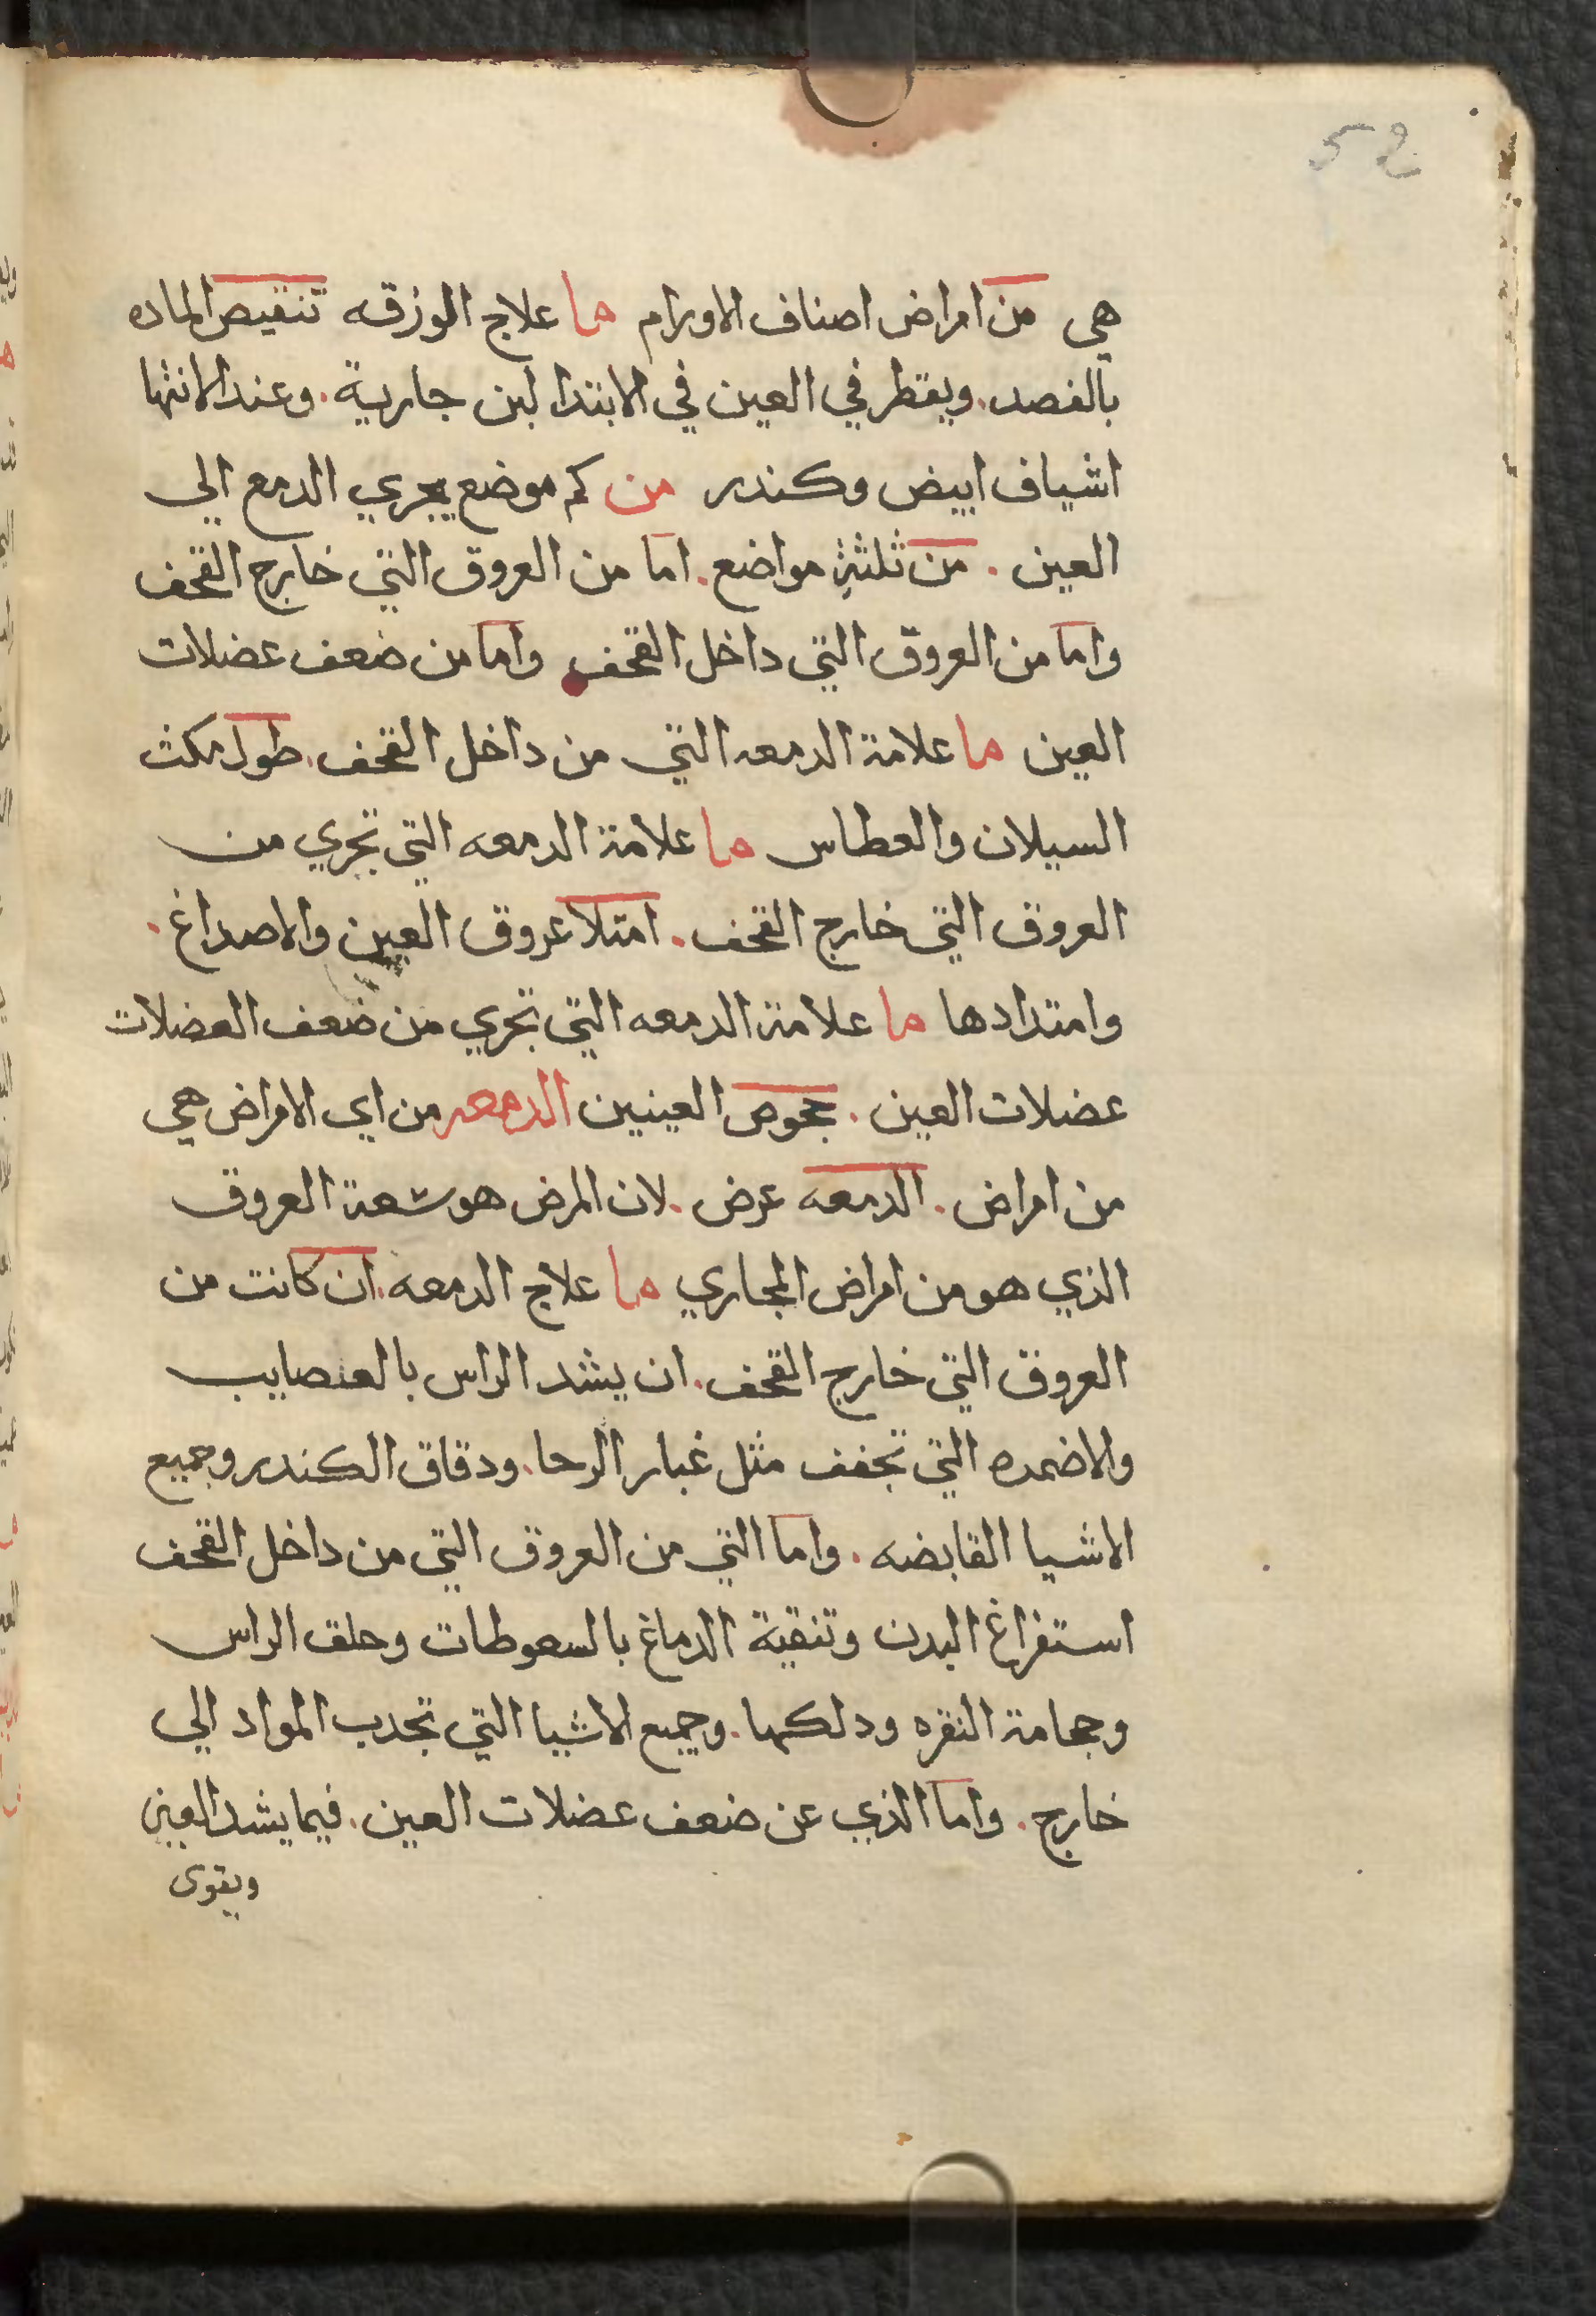 52
هي من امراض اصناف الاورام ما علاج الوزقه تنقيص الماده
بالفصد. ويقطر في العين في الابتدا لبن جارية. وعند الانتها
اشياف ابيض وكندر من كم موضع يجري الدمع الي
العين. من ثلثة مواضع. اما من العروق التي خارج القحف
واما من العروق التي داخل القحف واما من ضعف عضلات
العين ما علامة الدمعه التي من داخل القحف. طول مكث
السيلان والعطاس ما علامة الدمعه التي تجري من
العروق التي خارج القحف. امتلا عروق العين والاصداغ.
وامتدادها ما علامة الدمعه التي تجري من ضعف العضلات
عضلات العين. جحوص العينين الدمعه من اي الامراض هي
من امراض. الدمعه عرض. لان المرض هو سعة العروق
الذي هو من امراض المجاري ما علاج الدمعه. ان كانت من
العروق التي خارج القحف. ان يشد الراس بالعصايب
والاضمده التي تجفف مثل غبار الرحا. ودقاق الكندر وجميع
الاشيا القابضه. واما التي من العروق التي من داخل القحف
استفراغ البدن وتنقية الدماغ بالسعوطات وحلق الراس
وحجامة النقره ودلكها. وجميع الاشيا التي تجدب المواد الي
خارج. واما الذي عن ضعف عضلات العين. فيما يشد العين
ويقوى